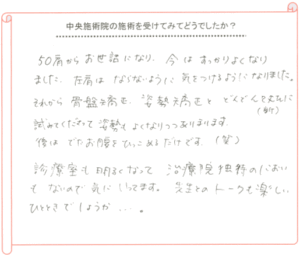 中央施術院の施術を受けてみてどうでしたか？
50肩からお世話になり、今はすっかりよくなり
ました。左肩はならないように気をつけるようになりました。
それから骨盤矯正、姿勢矯正とどんどん
試みてくださって姿勢もよくなりつつあります。
後はでたお腹をひっこめるだけです。(笑)
診療室も明るくなって 治療院独特のにおい
もないので気に入ってます。先生とのトークも楽しい
ひとときでしょうか…。